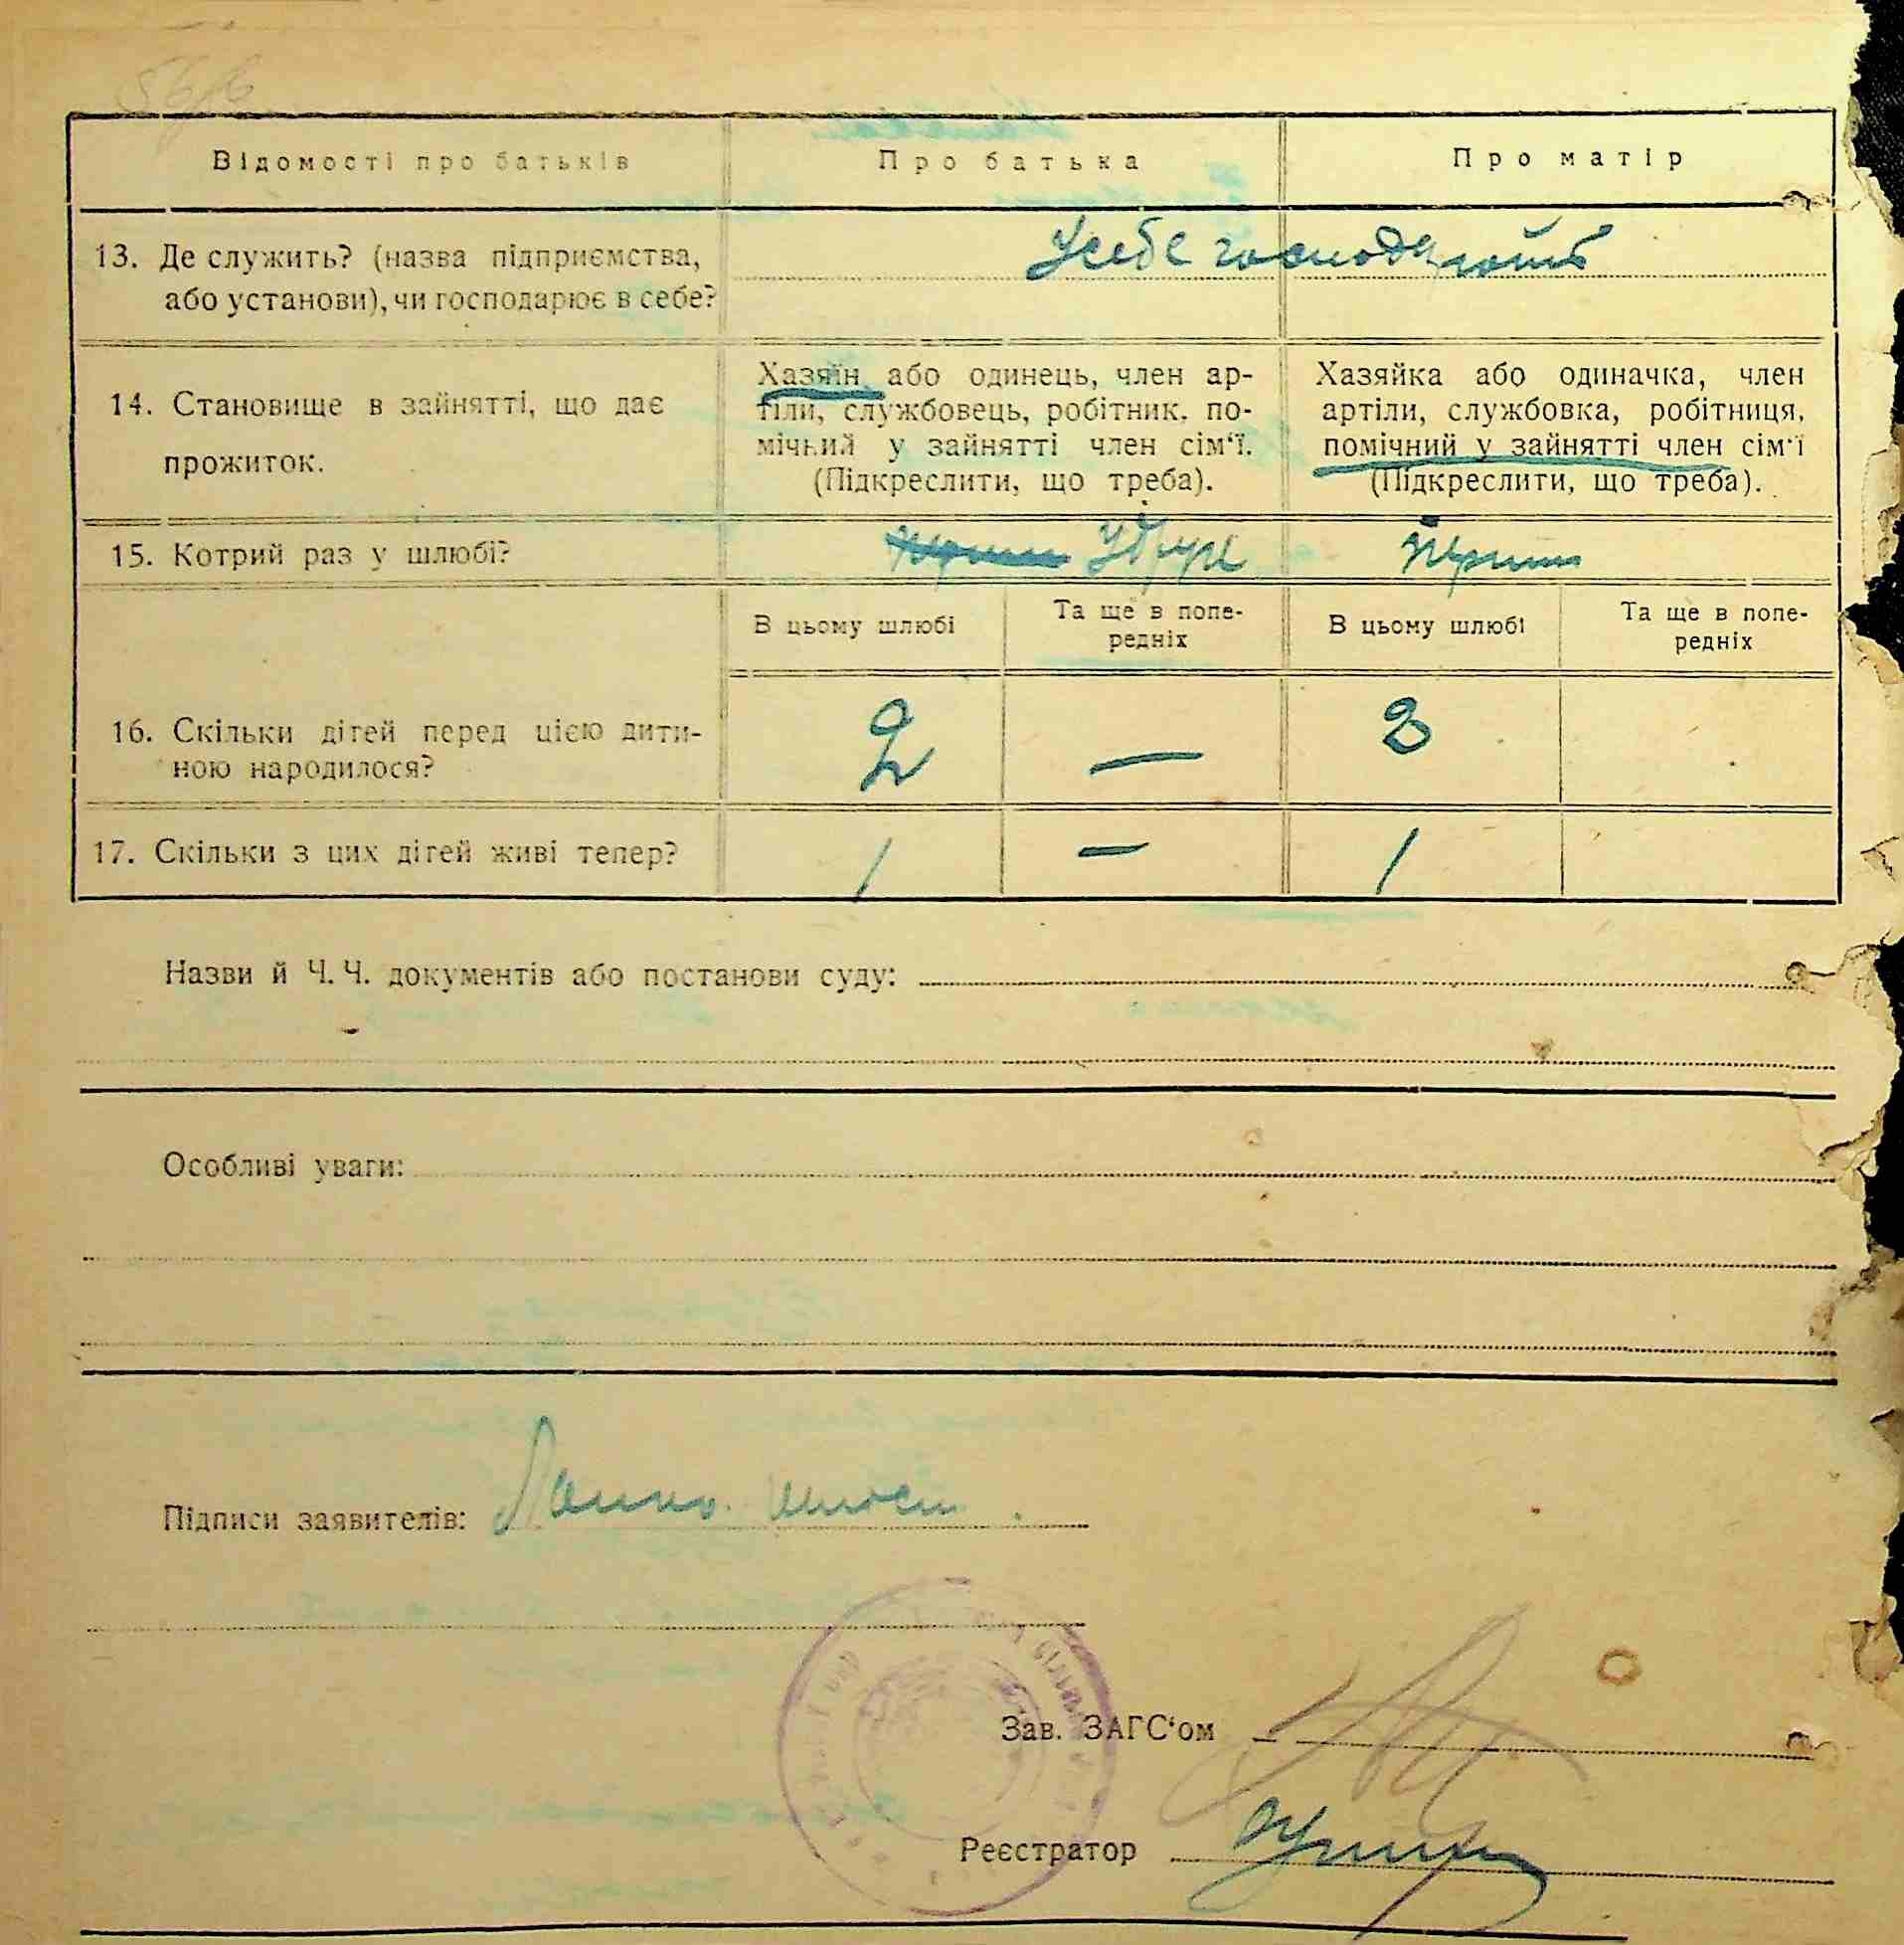 Відомості про батьків
Про батька
Про матір
13. Де служить? (назва підприємства,
або установи), чи господарює в себе?
Усебе господарюють
14. Становище в зайнятті, що дає
прожиток.
Хазяїн або одинець, член ар-
тіли, службовець, робітник, по-
мічний у зайнятті член сім‘ї.
(Підкреслити, що треба).
Хазяйка або одиначка, член
артіли, службовка, робітниця,
помічний у зайнятті член сім‘ї
(Підкреслити, що треба).
15. Котрий раз у шлюбі?
Удруг
Перши
В цьому шлюбі
Та ще в попе-
редніх
В цьому шлюбі
Та ще в попе-
редніх
16. Скільки дітей перед цією дити-
ною народилося?
2
—
3
17. Скільки з цих дітей живі тепер?
1
—
1
Назви й Ч. Ч. документів або постанови суду:
Особливі уваги:
Підписи заявителів:
Зав. ЗАГС‘ом
Реєстратор